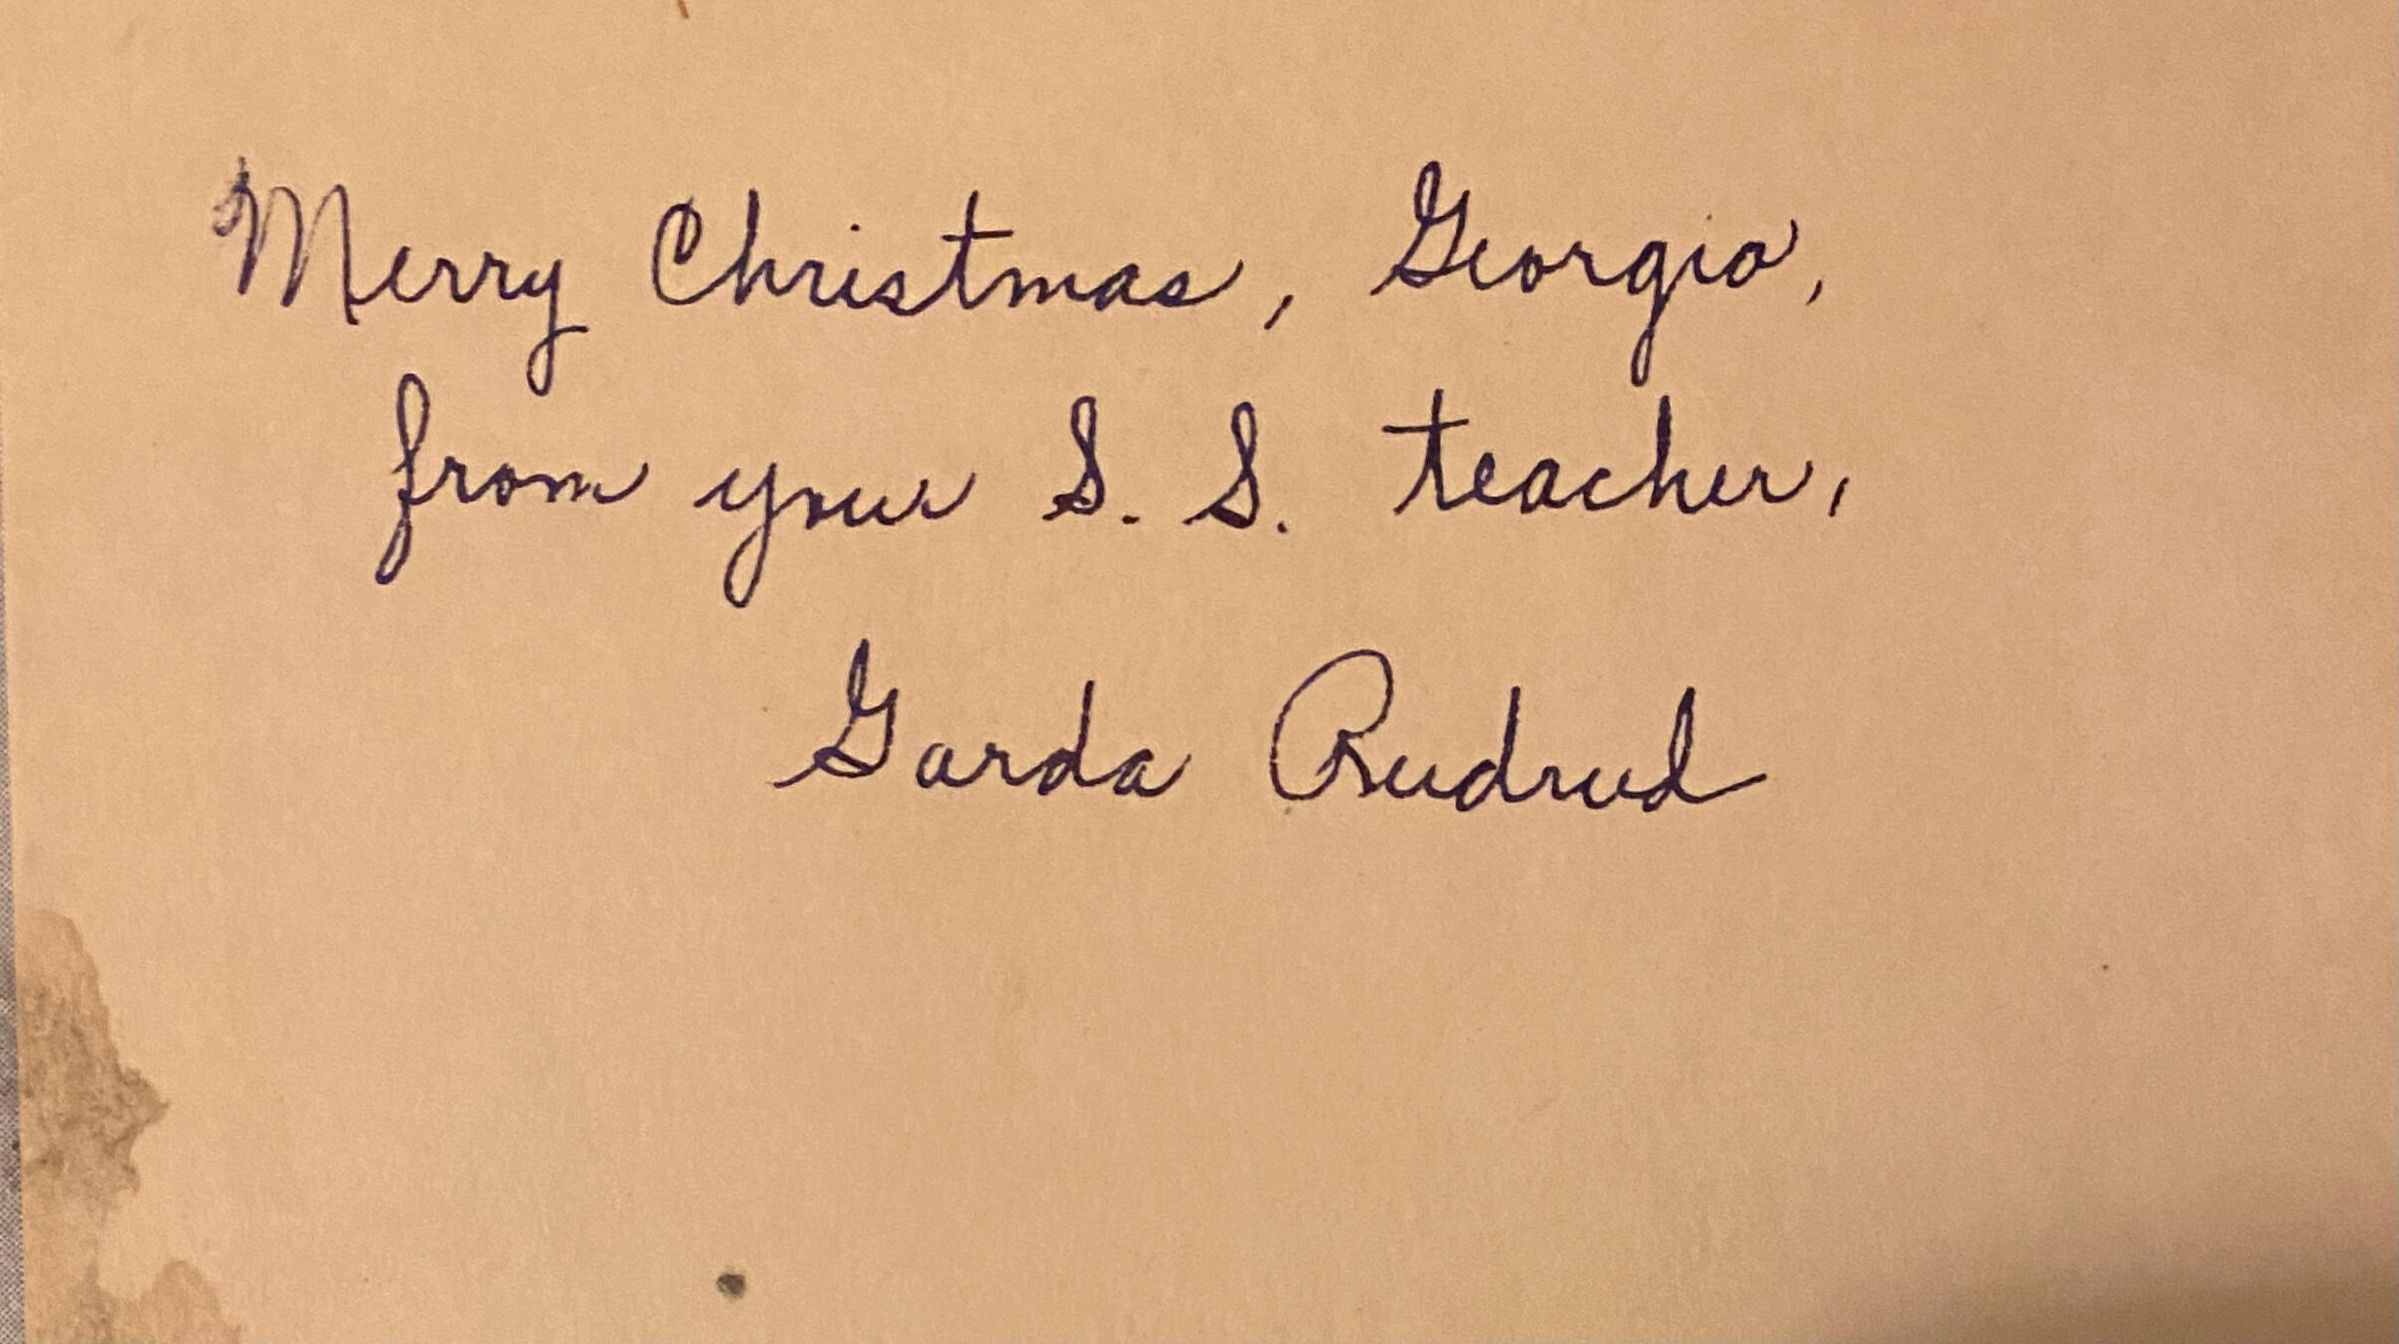 Merry Christmas, Georgia,
from your S. S. teacher,
Garda Rudrud